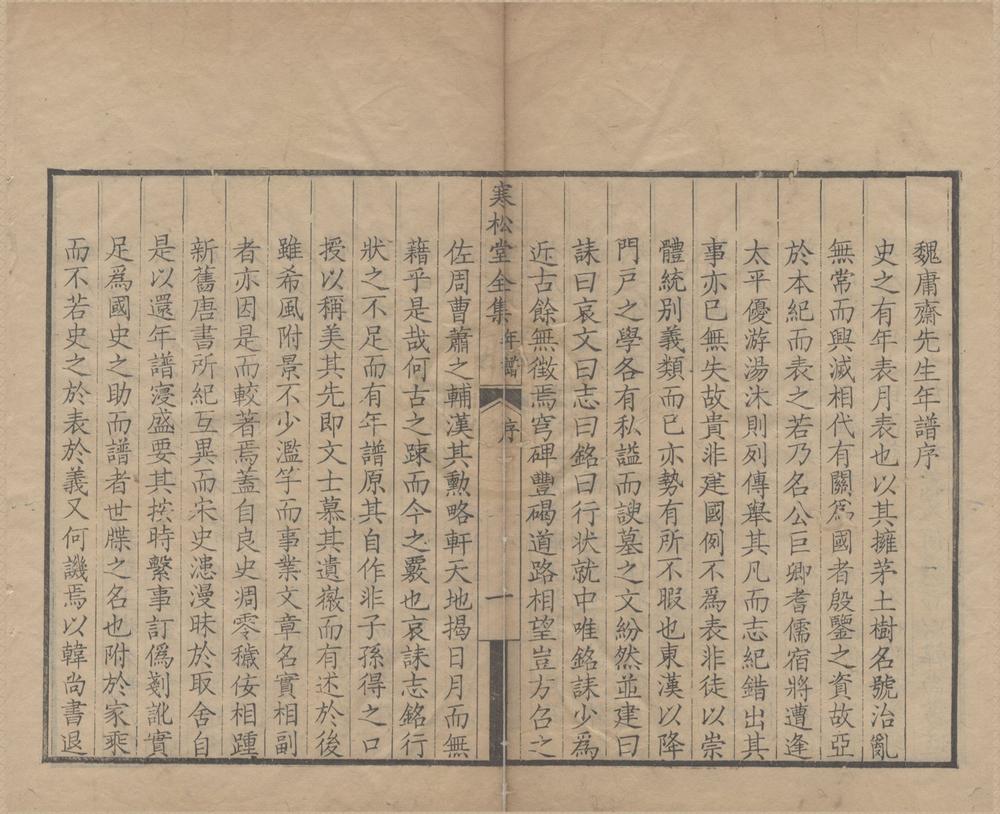 魏庸齋先生年譜序
史之有年表月表也以其擁茅土樹名號治亂
無常而興滅相代有關爲國者殷鑒之資故亞
於本紀而表之若乃名公巨卿耆儒宿將遭逢
太平優游湯沐則列傳舉其凡而志紀錯出其
事亦已無失故貴非建國例不爲表非徒以崇
體統别義類而已亦勢有所不暇也東漢以降
門戸之學各有私諡而諛墓之文紛然並建曰
誄曰哀文曰志曰銘曰行状就中唯銘誄少爲
近古餘無徴焉穹碑豐碣道路相望豈方召之
寒松堂全集 年譜 序 一
佐周曹蕭之輔漢其勲略軒天地揭日月而無
藉乎是哉何古之踈而今之覈也哀誄志銘行
狀之不足而有年譜原其自作非子孫得之口
授以稱美其先即文士慕其遺徽而有述於後
雖希風附景不少濫竽而事業文章名實相副
者亦因是而較著焉蓋自良史凋零穢佞相踵
新舊唐書所紀互異而宋史漶漫昧於取舍自
是以還年譜寖盛要其按時繫事訂僞剗訛實
足爲國史之助而譜者世牒之名也附於家乘
而不若史之於表於義又何譏焉以韓尚書退